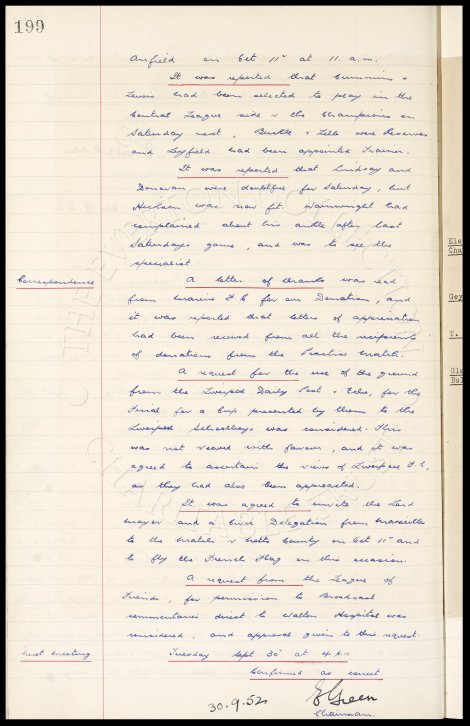 199
Anfield on Oct 11th at 11. a.m.
It was reported that Cummins &
Lewis had been selected to play in the
Central League side v the Champions on
Saturday next, Buckle & Lello were Reserves
and Leyfield had been appointed Trainer.
It was reported that Lindsay and
Donovan were doubtful for Saturday, but
Hickson was now fit. Wainwright had
complained about his ankle after last
Saturdays game, and was to see the
specialist.
Correspondence
A letter of thanks was read
from Marine F.C for our Donation, and
it was reported that letters of appreciation
had been received from all the recipients
of donations from the Practice Match.
A request for the use of the ground
from the Liverpool Daily Post & Echo, for the
Final for a Cup presented by them to the
Liverpool Schoolboys was considered. This
was not viewed with favour, and it was
agreed to ascertain the views of Liverpool F.C,
as they had also been approached.
It was agreed to invite the Lord
Mayor and a Civic Delegation from Marseilles
to the Match v Notts County on Oct 11th and
to fly the French Flag on this occasion.
A request from the League of
Friends, for permission to Broadcast
commentaries direct to Walton Hospital was
considered, and approval given to this request.
Next Meeting
Tuesday Sept 30th at 4 p.m
Confirmed as correct
30.9.52
E Green
Chairman
THE EVERTON COLLECTION
CHARITABLE TRUST
Ele
Cha
Gey
T.
Gla
Bul